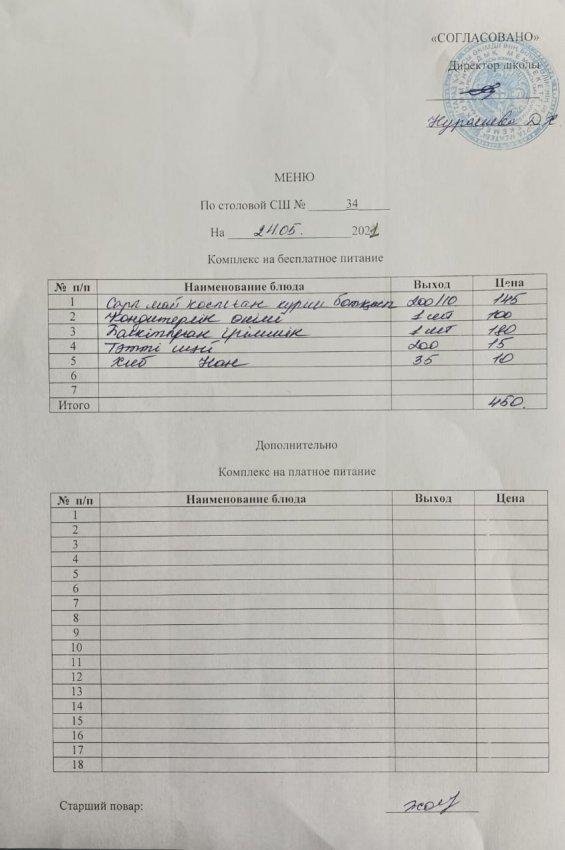 «СОГЛАСОВАНО»
Директор школы
Нурашева Д Х
МЕНЮ
По столовой СШ № 34
На 24.05. 2021
Комплекс на бесплатное питание
№ п/п Наименование блюда Выход Цена
1 Сары май қосылған күріш ботқасы 200/10 145
2 Кондитерлік өнімі 1 шт 100
3 ірімшік 1 шт 180
4 Тәтті шәй 200 15
5 Хлеб Нан 35 10
6
7
Итого 450
Дополнительно
Комплекс на платное питание
№ п/п Наименование блюда Выход Цена
1
2
3
4
5
6
7
8
9
10
11
12
13
14
15
16
17
18
Старший повар: